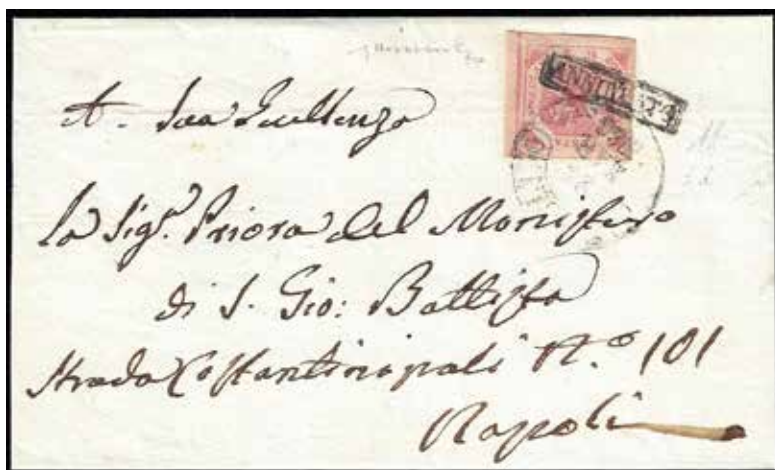 ANNULLATO
A Sua Eccellenza
La Sig.ª Priora del Monistero
di S. Gio: Battista
Strada Costantinopoli N.º 101
Napoli